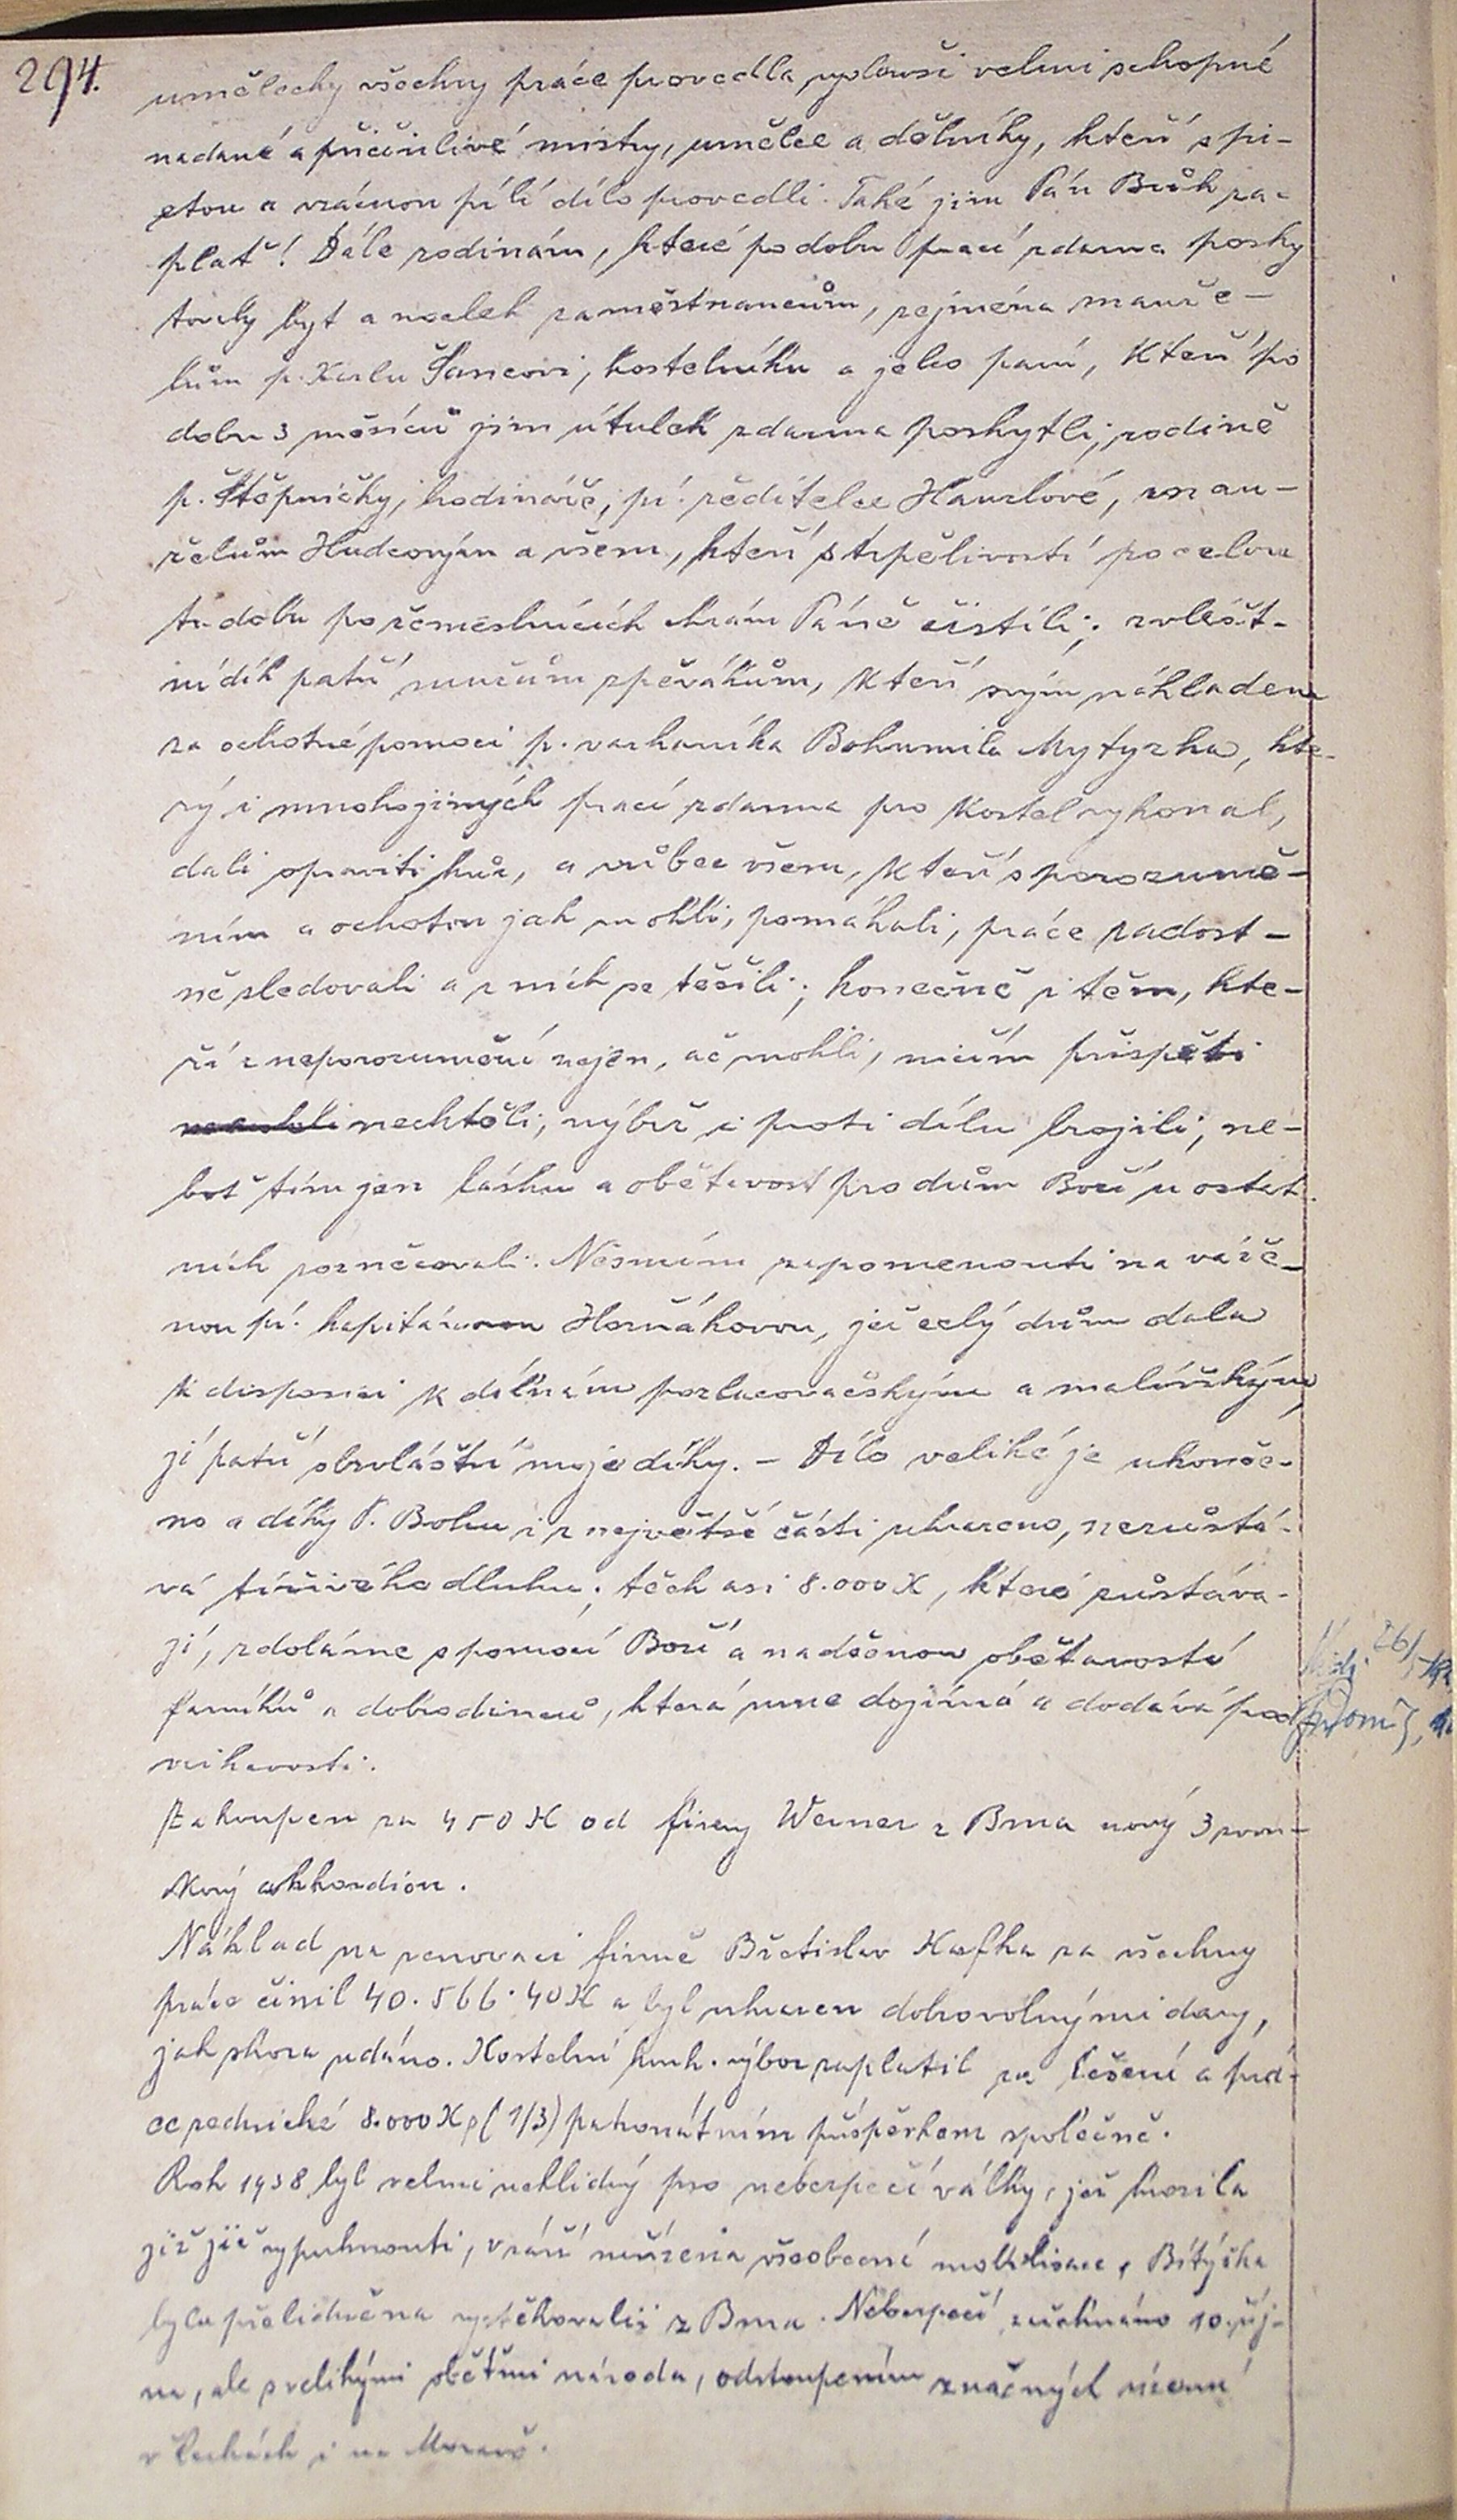 294.
umělecky všechny práce provedla, vyslavši velmi schopné
nadané a přičinlivé mistry, umělce a dělníky, kteří s pi-
etou a vzácnou pílí dílo provedli. Také jim Pán Bůh za-
plať! Dále rodinám, které po dobu prací zdarma posky
tovaly byt a nocleh zaměstnancům, zejména manže-
lům p. Karlu Šancovi, kostelníku a jeho paní, kteří po
dobu 3 měsíců jim útulek zdarma poskytli; rodině
p. Štěpničky, hodináře, pí. ředitelce Hanzlové, man-
želům Hudcovým a všem, kteří s trpělivostí po celou
tu dobu po řemeslnících chrám Páně čistili; zvlášt-
ní dík patří mužům zpěvákům, kteří svým nákladem
za ochotné pomoci p. varhaníka Bohumila Mytyzka, kte-
rý i mnoho jiných prací zdarma pro kostel vykonal,
dali opraviti kůr, a vůbec všem, kteří s porozumě-
ním a ochotou jak mohli, pomáhali, práce radost-
ně sledovali a z nich se těšili; konečně i těm, kte-
ří z neporozumění nejen, ač mohli, ničím přispěti
nechtěli, nýbrž i proti dílu brojili, ne-
boť tím jen lásku a obětavost pro dům Boží u ostat-
ních pozněcovali. Nesmím zapomenouti na váže-
nou pí. kapitánovou Horňákovou, jež celý dům dala
k disposici k dílnám pozlacovačským a malířským,
jí patří obzvláštní moje díky. – Dílo veliké je ukonče-
no a díky P. Bohu i z největší části uhrazeno, nezůstá-
vá tíživého dluhu; těch asi 8.000 K, které zůstáva-
jí, zdoláme s pomocí Boží a nadšenou obětavostí
farníků a dobrodinců, která mne dojímá a dodává pra
cihavosti.
Zakoupen za 450 K od firmy Werner z Brna nový 3 zvon-
kový akkordion.
Náklad na renovaci firmě Břetislav Kafka za všechny
práce činil 40.566.40 K a byl uhrazen dobrovolnými dary,
jak shora udáno. Kostelní konk. výbor zaplatil za lešení a prá-
ce zednické 8.000 K, s (1/3) patronátním příspěvkem společně.
Rok 1938 byl velmi neklidný pro nebezpečí války, jež hrozila
již již vypuknouti, v září nařízena všeobecná mobilisace, Bítýška
byla přelidněna vystěhovalci z Brna. Nebezpečí zažehnáno 10. říj-
na, ale s velikými obětmi národa, odstoupením značných území
v Čechách i na Moravě.
26/